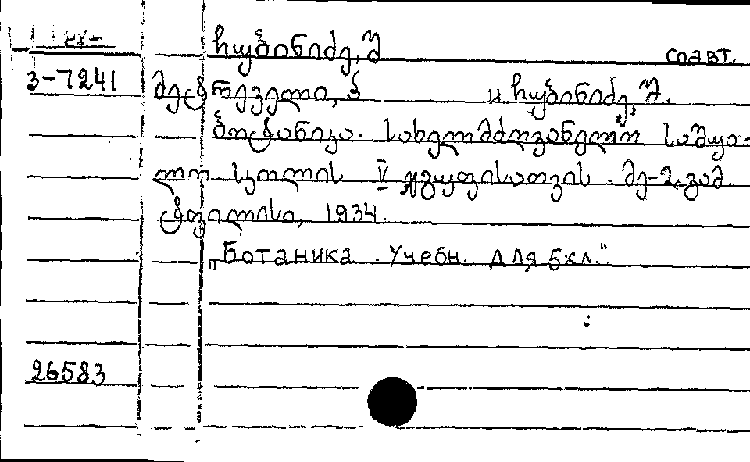 ჩუბინიძე, შ соавт.
3-7241 მეტრეველი, ვ и ჩუბინიძე, შ.
ბოტანიკა. სახელმძღვანელო საშუა-
ლო სკოლის V ჯგუფისათვის. მე-2 გამ
ტფილისი, 1934.
„Ботаника. Учебн. для 5 кл."
26583